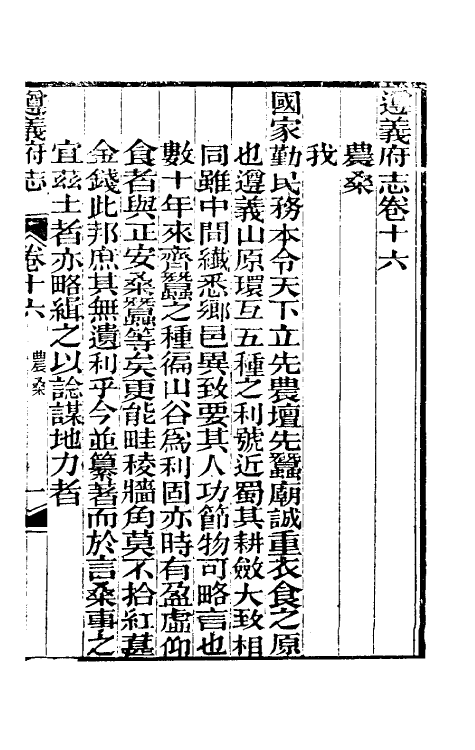 遵義府志卷十六
農桑
我
國家勤民務本令天下立先農壇先蠶廟誠重衣食之原
也遵義山原環互五種之利號近蜀其耕斂大致相
同雖中間纖悉鄉邑異致要其人功節物可略言也
數十年來齊蠶之種徧山谷爲利固亦時有盈虛仰
食者與正安桑蠶等矣更能畦稜牆角莫不拾紅葚
金錢此邦庶其無遺利乎今並纂著而於言桑事之
宜兹土者亦略緝之以諗謀地力者
遵義府志 卷十六 農桑 一